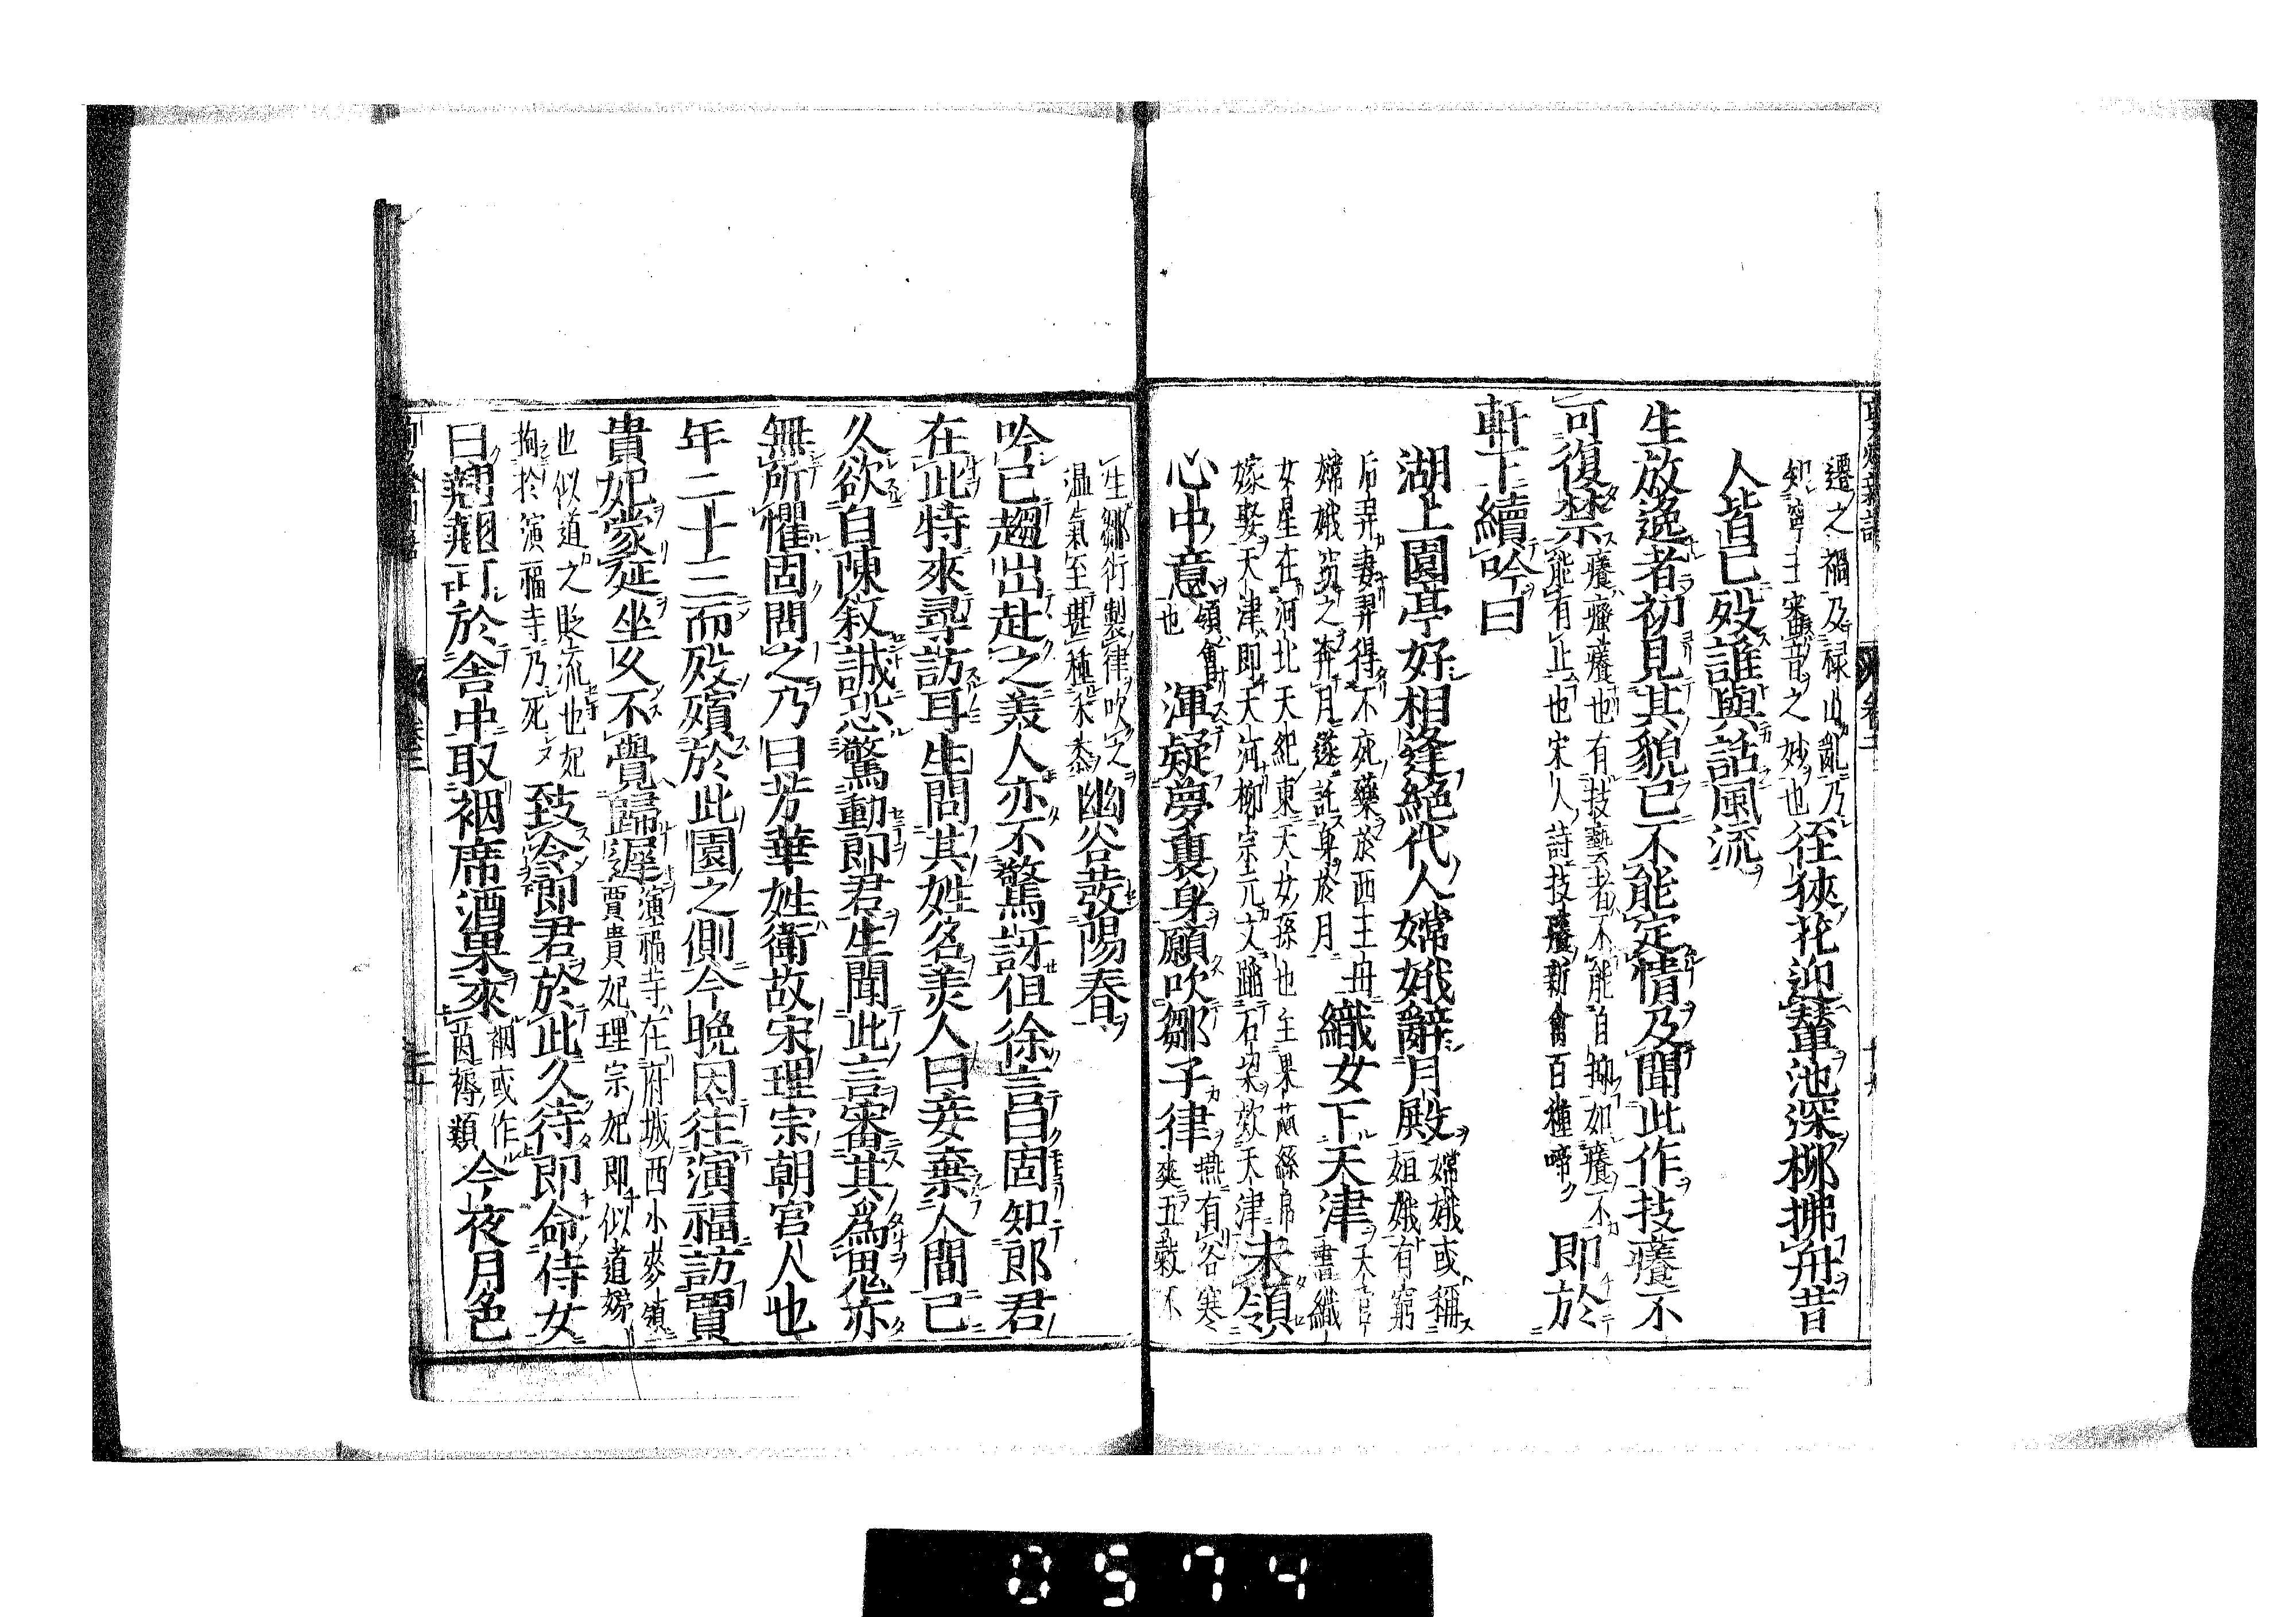 遷之禍及禄山亂乃
知寧王審音之妙也
徑狹花迎輦池深柳拂舟昔
人皆已歿誰與話風流
生放逸者初見其貌已不能定情及聞此作技癢不
可復禁
癢癢也有技藝者不能自抑如癢不
能有止也宋人詩技癢新禽百種啼
即於
軒下續吟曰
湖上園亭好相逢絶代人嫦娥辭月殿
嫦娥或稱
姮娥有窮
后羿妻羿得不死藥於西王母
嫦娥竊之奔月遂託身於月
織女下天津
天官
書織
女星在河北天紀東天女孫也主果蓏絲帛
嫁娶天津即天河柳宗元文
天津
未領
心中意
領會
也
渾疑夢裏身願吹鄒子律
燕有谷寒
爽五穀不
生鄒衍製律吹之
温氣至堪種禾黍
幽谷發陽春
吟已趨出赴之美人亦不驚訝徂徐言曰固知郎君
在此特來尋訪耳生問其姓名美人曰妾棄人間已
久欲自陳敘誠恐驚動郎君生聞此言審其爲鬼亦
無所懼固問之乃曰芳華姓衛故宋理宗朝宮人也
年二十三而歿殯於此園之側今晩因往演福訪賈
貴妃蒙延坐久不覺歸遲
演福寺在府城西小麥嶺
賈貴妃理宗妃即似道娣
也似道之貶流也妃
拘於演福寺乃死
致令郎君於此久待即命侍女
曰翹翹可於舎中取裀席酒果來
裀或作
茵褥類
今夜月色
巻三
二十
0574